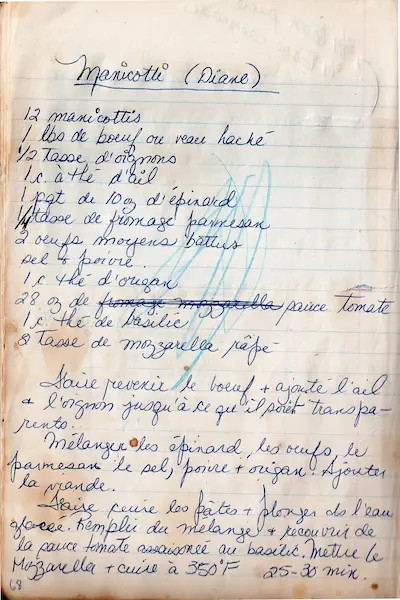 Manicotti (Diane)
12 manicottis
1 lbs de boeuf ou veau haché
1/2 tasse d'oignons
1 c. à thé d'ail
1 pqt de 10 oz d'épinard
1/4 tasse de fromage parmesan
2 oeufs moyens battus
sel + poivre
1 c thé d'origan
28 oz de fromage mozzarella sauce tomate
1 c thé de basilic
8 tasse de mozzarella râpé
Faire revenir le boeuf + ajouté l'ail
+ l'oignon jusqu'à ce qu'il soient transpa-
rents.
Mélanger les épinard, les oeufs, le
parmesan le sel, poivre + origan. Ajouter
la viande.
Faire cuire les pâtes + plonger ds l'eau
glacée. Remplir du mélange + recouvrir de
la sauce tomate assaisonée au basilic. Mettre le
Mozzarella + cuire à 350°F 25-30 min.
68